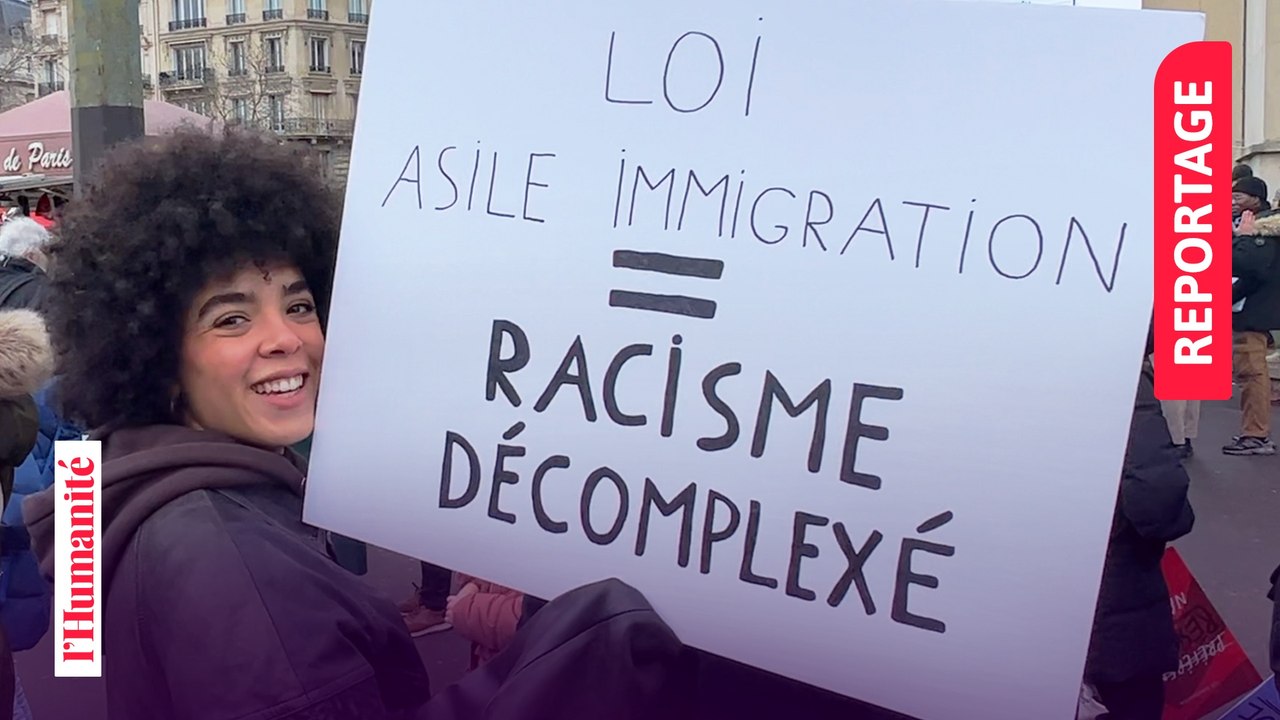 LOI
ASILE IMMIGRATION
=
RACISME
DÉCOMPLEXÉ
REPORTAGE
l'Humanité
de Paris
PRÉFÉR